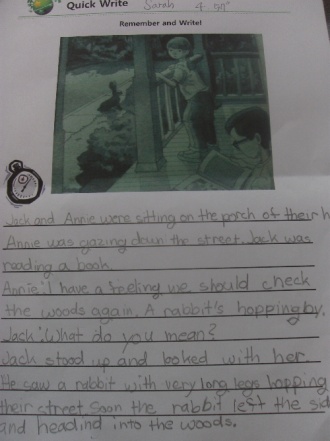 Quick Write Sarah
Remember and Write!
Jack and Annie were sitting on the porch of their h
Annie was gazing down the street. Jack was
reading a book.
Annie: I have a feeling we should check
the woods again. A rabbit's hopping by.
Jack: What do you mean?
Jack stood up and looked with her.
He saw a rabbit with very long legs hopping
their street. Soon the rabbit left the sid
and heading into the woods.